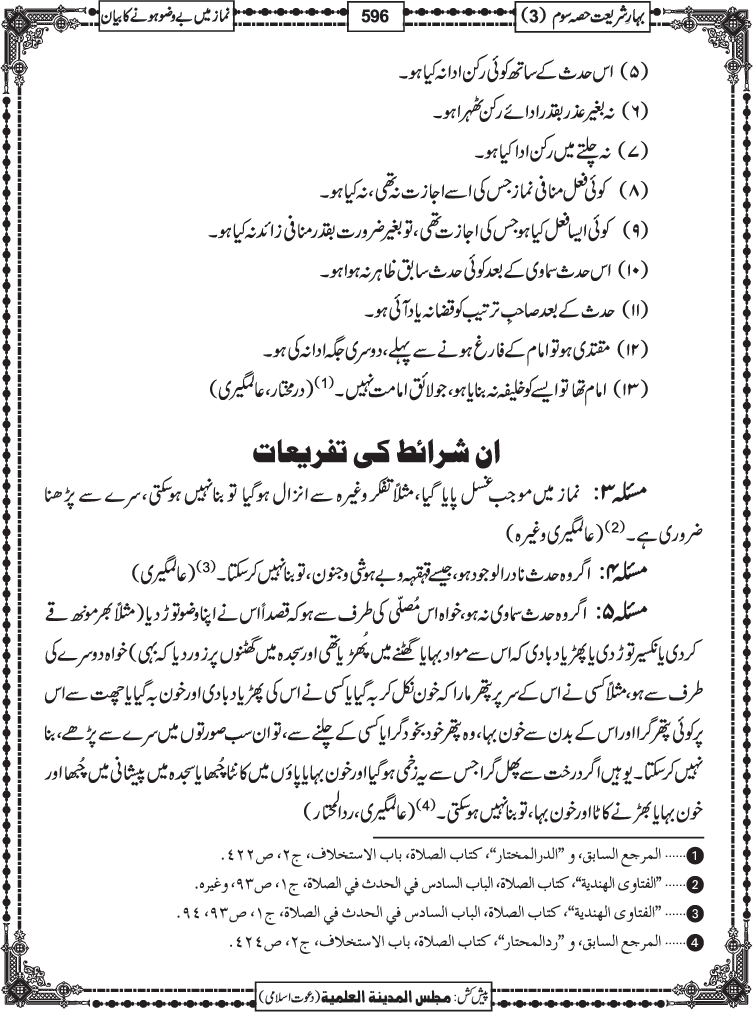 بہارِ شریعت حصہ سوم (3)
596
نماز میں بے وضو ہونے کا بیان
(۵) اس حدث کے ساتھ کوئی رکن ادا نہ کیا ہو۔
(۶) نہ بغیر عذر بقدر ادائے رکن ٹھہرا ہو۔
(۷) نہ چلتے میں رکن ادا کیا ہو۔
(۸) کوئی فعل منافی نماز جس کی اسے اجازت نہ تھی، نہ کیا ہو۔
(۹) کوئی ایسا فعل کیا ہو جس کی اجازت تھی، تو بغیر ضرورت بقدر منافی زائد نہ کیا ہو۔
(۱۰) اس حدث سماوی کے بعد کوئی حدث سابق ظاہر نہ ہوا ہو۔
(۱۱) حدث کے بعد صاحبِ ترتیب کو قضا نہ یاد آئی ہو۔
(۱۲) مقتدی ہو تو امام کے فارغ ہونے سے پہلے، دوسری جگہ ادا نہ کی ہو۔
(۱۳) امام تھا تو ایسے کو خلیفہ نہ بنایا ہو، جو لائق امامت نہیں۔(1) (درمختار، عالمگیری)
ان شرائط کی تفریعات
مسئلہ ۳: نماز میں موجب غسل پایا گیا، مثلاً تفکر وغیرہ سے انزال ہوگیا تو بنا نہیں ہوسکتی، سرے سے پڑھنا
ضروری ہے۔(2) (عالمگیری وغیرہ)
مسئلہ ۴: اگر وہ حدث نادر الوجود ہو، جیسے قہقہہ و بے ہوشی و جنون، تو بنا نہیں کرسکتا۔(3) (عالمگیری)
مسئلہ ۵: اگر وہ حدث سماوی نہ ہو، خواہ اس مُصلّی کی طرف سے ہو کہ قصداً اس نے اپنا وضو توڑ دیا (مثلاً بھر مونھ قے
کر دی یا نکسیر توڑ دی یا پھڑیا دبا دی کہ اس سے مواد بہا یا گھٹنے میں پُھڑیا تھی اور سجدہ میں گھٹنوں پر زور دیا کہ بہی) خواہ دوسرے کی
طرف سے ہو، مثلاً کسی نے اس کے سر پر پتھر مارا کہ خون نکل کر بہ گیا یا کسی نے اس کی پھڑیا دبا دی اور خون بہ گیا یا چھت سے اس
پر کوئی پتھر گرا اور اس کے بدن سے خون بہا، وہ پتھر خود بخود گرا یا کسی کے چلنے سے، تو ان سب صورتوں میں سرے سے پڑھے، بنا
نہیں کرسکتا۔ یوہیں اگر درخت سے پھل گرا جس سے یہ زخمی ہوگیا اور خون بہا یا پاؤں میں کانٹا چُبھا یا سجدہ میں پیشانی میں چُبھا اور
خون بہا یا بھڑ نے کاٹا اور خون بہا، تو بنا نہیں ہوسکتی۔(4) (عالمگیری، ردالمحتار)
1 ...... المرجع السابق، و ”الدرالمختار“، کتاب الصلاة، باب الاستخلاف، ج٢، ص٤٢٢.
2 ...... ”الفتاوى الهندية“، كتاب الصلاة، الباب السادس في الحدث في الصلاة، ج١، ص٩٣، وغيره.
3 ...... ”الفتاوى الهندية“، كتاب الصلاة، الباب السادس في الحدث في الصلاة، ج١، ص٩٣، ٩٤.
4 ...... المرجع السابق، و ”ردالمحتار“، كتاب الصلاة، باب الاستخلاف، ج٢، ص٤٢٤.
پیش کش: مجلس المدینة العلمیة (دعوت اسلامی)